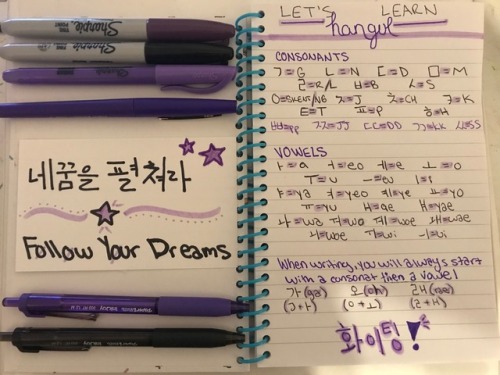 Sharpie
Sharpie
네 꿈을 펼쳐라
Follow Your Dreams
LET'S LEARN
hangul
CONSONANTS
ㄱ=G ㄴ=N ㄷ=D ㅁ=M
ㄹ=R/L ㅂ=B ㅅ=S
ㅇ=SILENT/NG ㅈ=J ㅊ=CH ㅋ=K
ㅌ=T ㅍ=P ㅎ=H
ㅃ=PP ㅉ=JJ ㄸ=DD ㄲ=KK ㅆ=SS
VOWELS
ㅏ=a ㅓ=eo ㅔ=e ㅗ=o
ㅜ=u ㅡ=eu ㅣ=i
ㅑ=ya ㅕ=yeo ㅖ=ye ㅛ=yo
ㅠ=yu ㅐ=ae ㅒ=yae
ㅘ=wa ㅝ=wo ㅞ=we ㅙ=wae
ㅚ=woe ㅟ=wi ㅢ=ui
When writing, you will always start
with a consonat then a vowel
가 (ga) 오 (oh) 래 (rae)
(ㄱ+ㅏ) (ㅇ+ㅗ) (ㄹ+ㅐ)
화이팅!